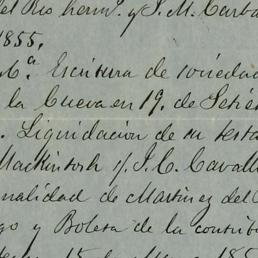 del Rio herm.º y J. M. Carba
1855.
Cª Escritura de sociedad
la Cueva en 19. de Setie
. Liquidacion de su testa
Mackintosh y J. C. Cavall
nalidad de Martinez del
go y Boleta de la contrib
15 de 185